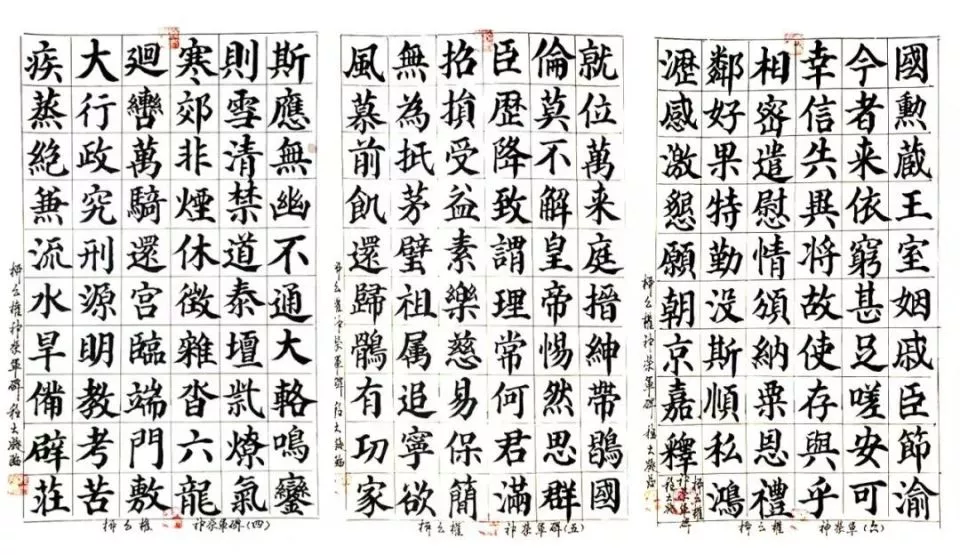 斯應無幽不通大輅鳴鑾
則雪清禁道泰壇紫燎氣
寒郊非煙休徵雜沓六龍
廻轡萬騎還宮臨端門敷
大行政究刑源明教考苦
疾蒸絶兼流水旱備辟莊
柳公權神策軍碑
柳公權 神策軍碑(四)
就位萬来庭搢紳帶鶡國
倫莫不解皇帝惕然思群
臣歷降致謂理常何君滿
招損受益素樂慈易保簡
無為抵茅璧祖属追寧欲
風慕前飢還歸鶻有切家
柳公權神策軍碑
柳公權 神策軍碑(五)
國勳蔵王室姻戚臣節渝
今者来依窮甚足嗟安可
幸信共異将故使存與乎
相密遣慰情頒納粟恩禮
鄰好果特勤没斯順私鴻
瀝感激懇願朝京嘉釋
柳公權神策軍碑
柳公權 神策軍碑(六)